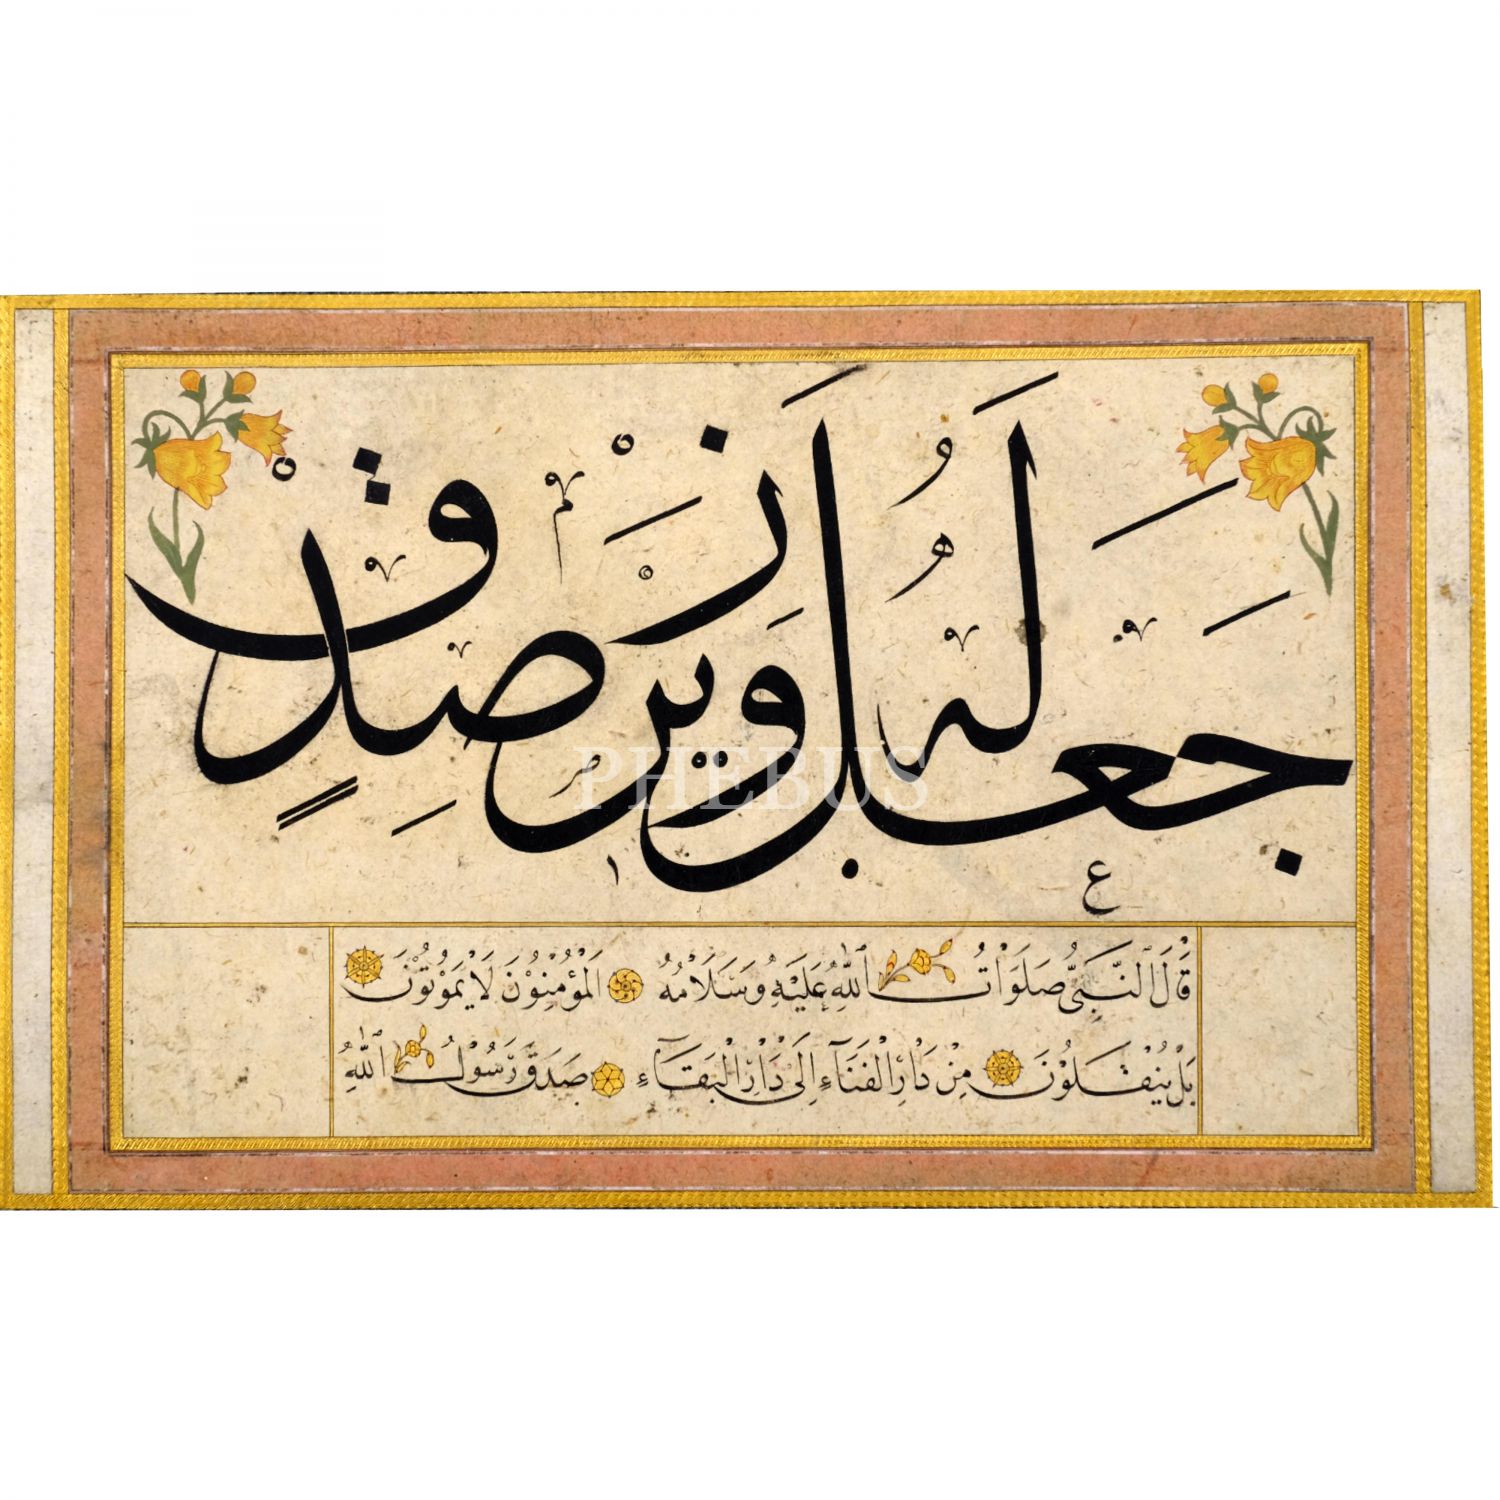 جَعَلَ لَهُ وَزِيرَ صِدْقٍ
PHEBUS
قَالَ النَّبِىُّ صَلَوَاتُ اللّٰهِ عَلَيْهِ وَسَلَامُهُ اَلْمُؤْمِنُوْنَ لَا يَمُوْتُوْنَ
بَلْ يُنْقَلُوْنَ مِنْ دَارِ الْفَنَاءِ اِلَى دَارِ الْبَقَاءِ صَدَقَ رَسُوْلُ اللّٰهِ